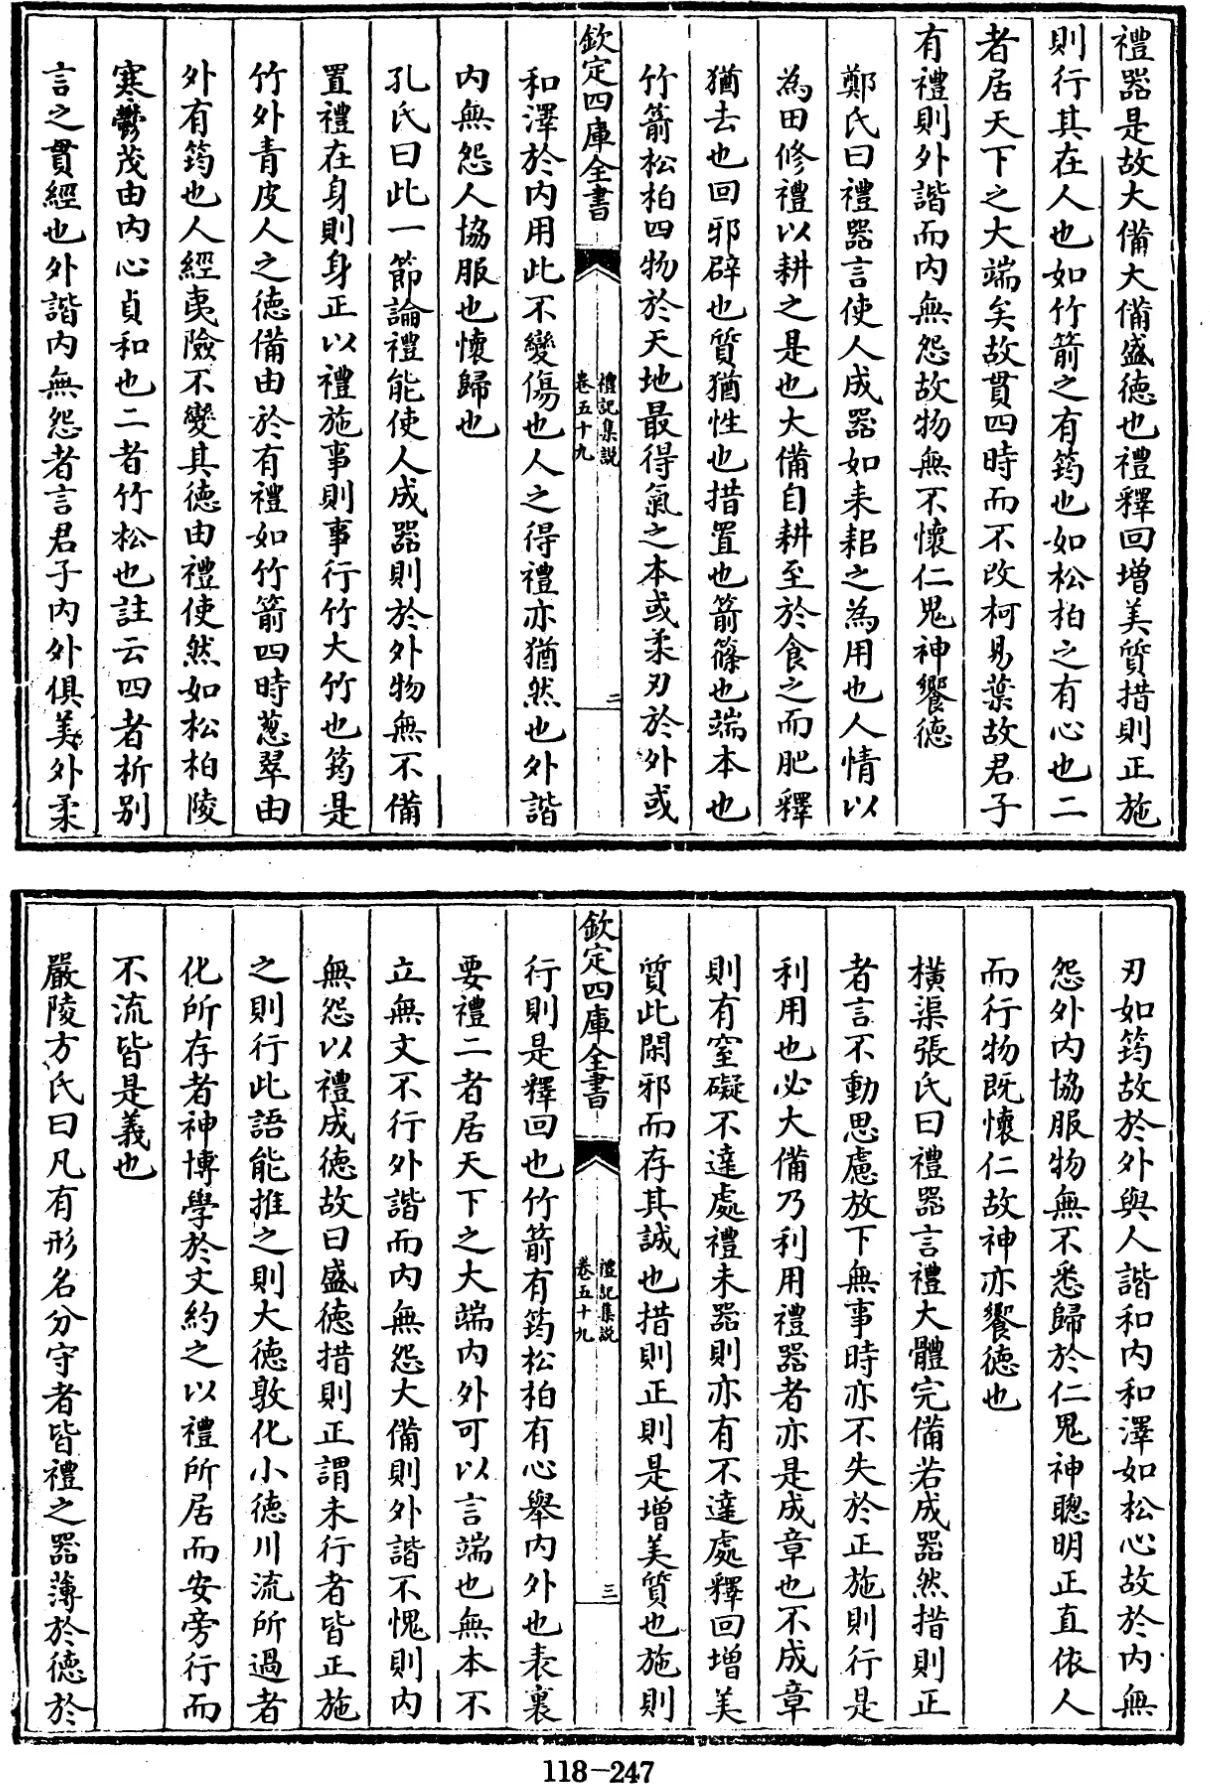 禮器是故大備大備盛徳也禮釋回增美質措則正施
則行其在人也如竹箭之有筠也如松柏之有心也二
者居天下之大端矣故貫四時而不改柯易葉故君子
有禮則外諧而内無怨故物無不懷仁鬼神饗徳
鄭氏曰禮器言使人成器如耒耜之為用也人情以
為田修禮以耕之是也大備自耕至於食之而肥釋
猶去也回邪辟也質猶性也措置也箭篠也端本也
竹箭松柏四物於天地最得氣之本或柔刃於外或
欽定四庫全書
禮記集説
卷五十九
二
和澤於内用此不變傷也人之得禮亦猶然也外諧
内無怨人協服也懷歸也
孔氏曰此一節論禮能使人成器則於外物無不備
置禮在身則身正以禮施事則事行竹大竹也筠是
竹外青皮人之徳備由於有禮如竹箭四時葱翠由
外有筠也人經夷險不變其徳由禮使然如松柏陵
寒鬱茂由内心貞和也二者竹松也註云四者析别
言之貫經也外諧内無怨者言君子内外俱美外柔
刃如筠故於外與人諧和内和澤如松心故於内無
怨外内協服物無不悉歸於仁鬼神聰明正直依人
而行物既懷仁故神亦饗徳也
横渠張氏曰禮器言禮大體完備若成器然措則正
者言不動思慮放下無事時亦不失於正施則行是
利用也必大備乃利用禮器者亦是成章也不成章
則有窒礙不達處禮未器則亦有不達處釋回增美
質此閑邪而存其誠也措則正則是增美質也施則
欽定四庫全書
禮記集説
卷五十九
三
行則是釋回也竹箭有筠松柏有心舉内外也表裏
要禮二者居天下之大端内外可以言端也無本不
立無文不行外諧而内無怨大備則外諧不愧則内
無怨以禮成徳故曰盛徳措則正謂未行者皆正施
之則行此語能推之則大徳敦化小徳川流所過者
化所存者神博學於文約之以禮所居而安旁行而
不流皆是義也
嚴陵方氏曰凡有形名分守者皆禮之器薄於徳於
118-247